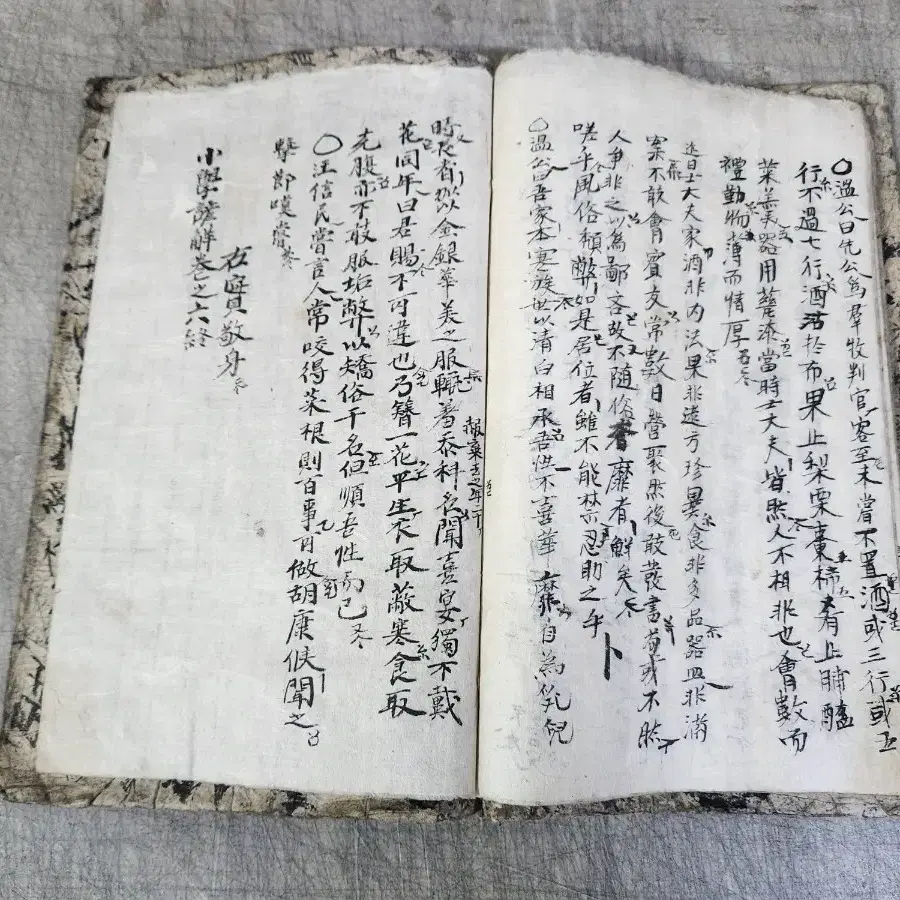 ○溫公曰先公爲羣牧判官客至未嘗不置酒或三行或五
行不過七行酒沽於市果止梨栗棗柿肴止脯醢
菜羹器用甆漆當時士大夫皆然人不相非也會數而
禮勤物薄而情厚
近日士大夫家酒非內法果非遠方珍異食非多品器皿非滿
案不敢會賓友常數日營聚然後敢發書苟或不然
人爭非之以爲鄙吝故不隨俗奢靡者鮮矣
嗟乎風俗頹弊如是居位者雖不能禁忍助之乎
○溫公曰吾家本寒族世以清白相承吾性不喜華靡自為乳兒
時長者加以金銀華美之服輒羞赧棄去之年二十忝科名聞喜宴獨不戴
花同年曰君賜不可違也乃簪一花平生衣取蔽寒食取
充腹亦不敢服垢弊以矯俗干名但順吾性而已
○汪信民嘗言人常咬得菜根則百事可做胡康侯聞之
擊節嘆賞
右實敬身
小學諺解卷之六終